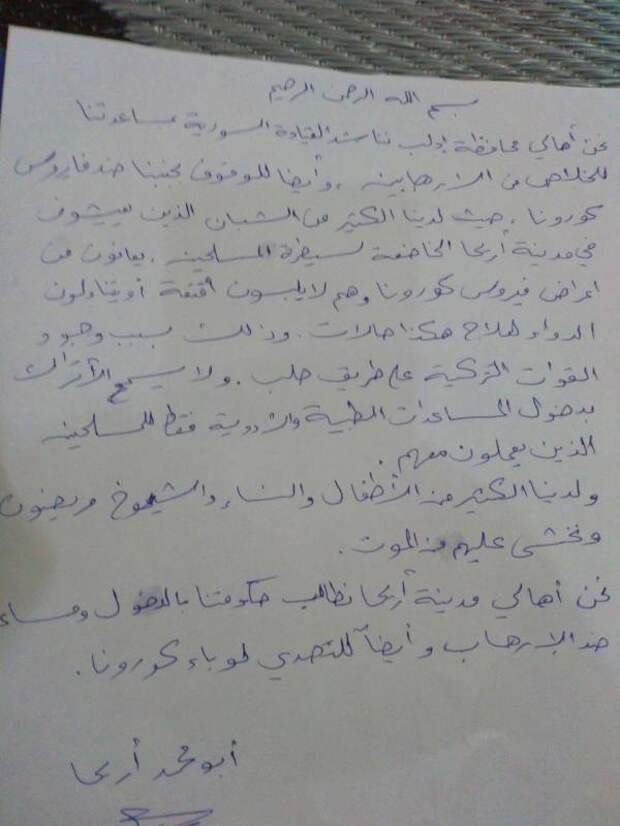 بسم الله الرحمن الرحيم
نحن أهالي محافظة إدلب نناشد القيادة السورية مساعدتنا
للخلاص من الارهابيين . وأيضا للوقوف بجنبنا ضد فايروس
كورونا . حيث لدينا الكثير من الشبان الذين يعيشون
في مدينة أريحا الخاضعة لسيطرة المسلحين . يعانون من
اعراض فيروس كورونا وهم لا يلبسون أقنعة أو يتناولون
الدواء لعلاج هكذا حالات . وذلك بسبب وجود
القوات التركية على طريق حلب . ولا يسمح الأتراك
بدخول المساعدات الطبية والأدوية فقط للمسلحين
الذين يعملون معهم .
ولدينا الكثير من الأطفال والنساء والشيوخ مريضون
ونخشى عليهم من الموت .
نحن أهالي مدينة أريحا نطالب حكومتنا بالدخول
ضد الإرهاب وأيضاً للتصدي لوباء كورونا .
أبو محمد أريحا